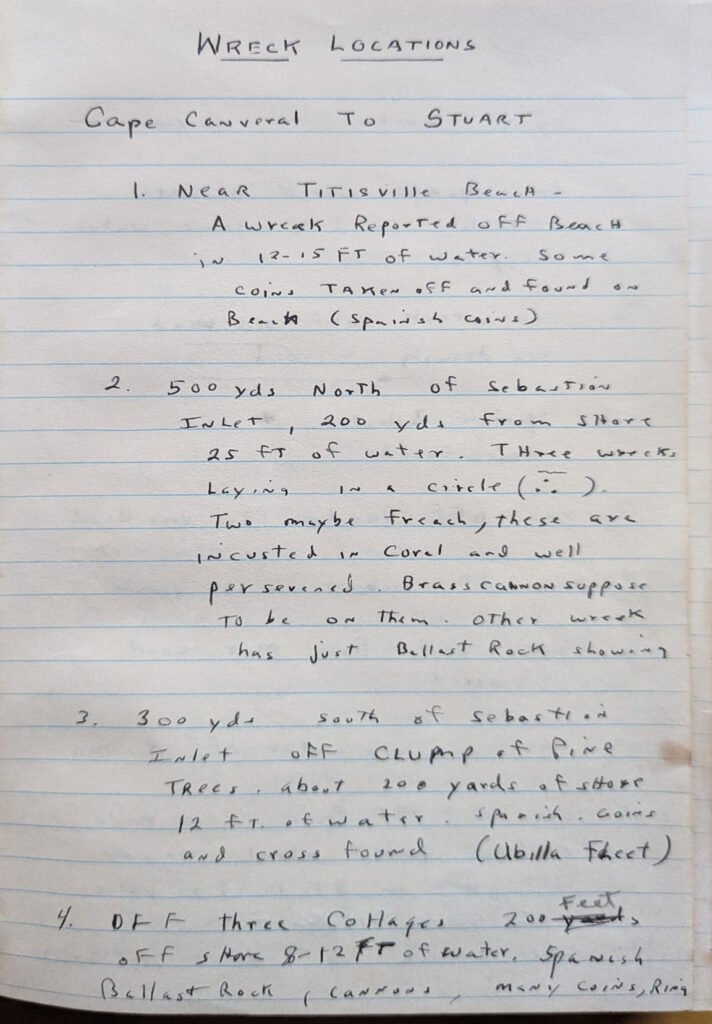 WRECK LOCATIONS
Cape Canveral To STUART
1. Near TITISVILLE Beach -
A wreck Reported off Beach
in 12-15 FT of water. Some
coins TAKEN off and found on
Beach (Spainish coins)
2. 500 yds North of Sebastion
INLet, 200 yds from SHore
25 FT of water. THree wrecks
Laying in a circle (∴).
Two maybe freach, these are
incusted in Coral and well
persevened. Brass cannon suppose
To be on them. OTHer wreck
has just Ballast Rock showing
3. 300 yds south of Sebastion
Inlet off CLUMP of Pine
Trees. about 200 yards of sHore
12 FT. of water. Spanish. Coins
and cross found (Ubilla Fheet)
4. OFF three Cottages 200 Feet
off sHore 8-12 FT of water. Spanish
Ballast Rock, cannons, many coins, Ring